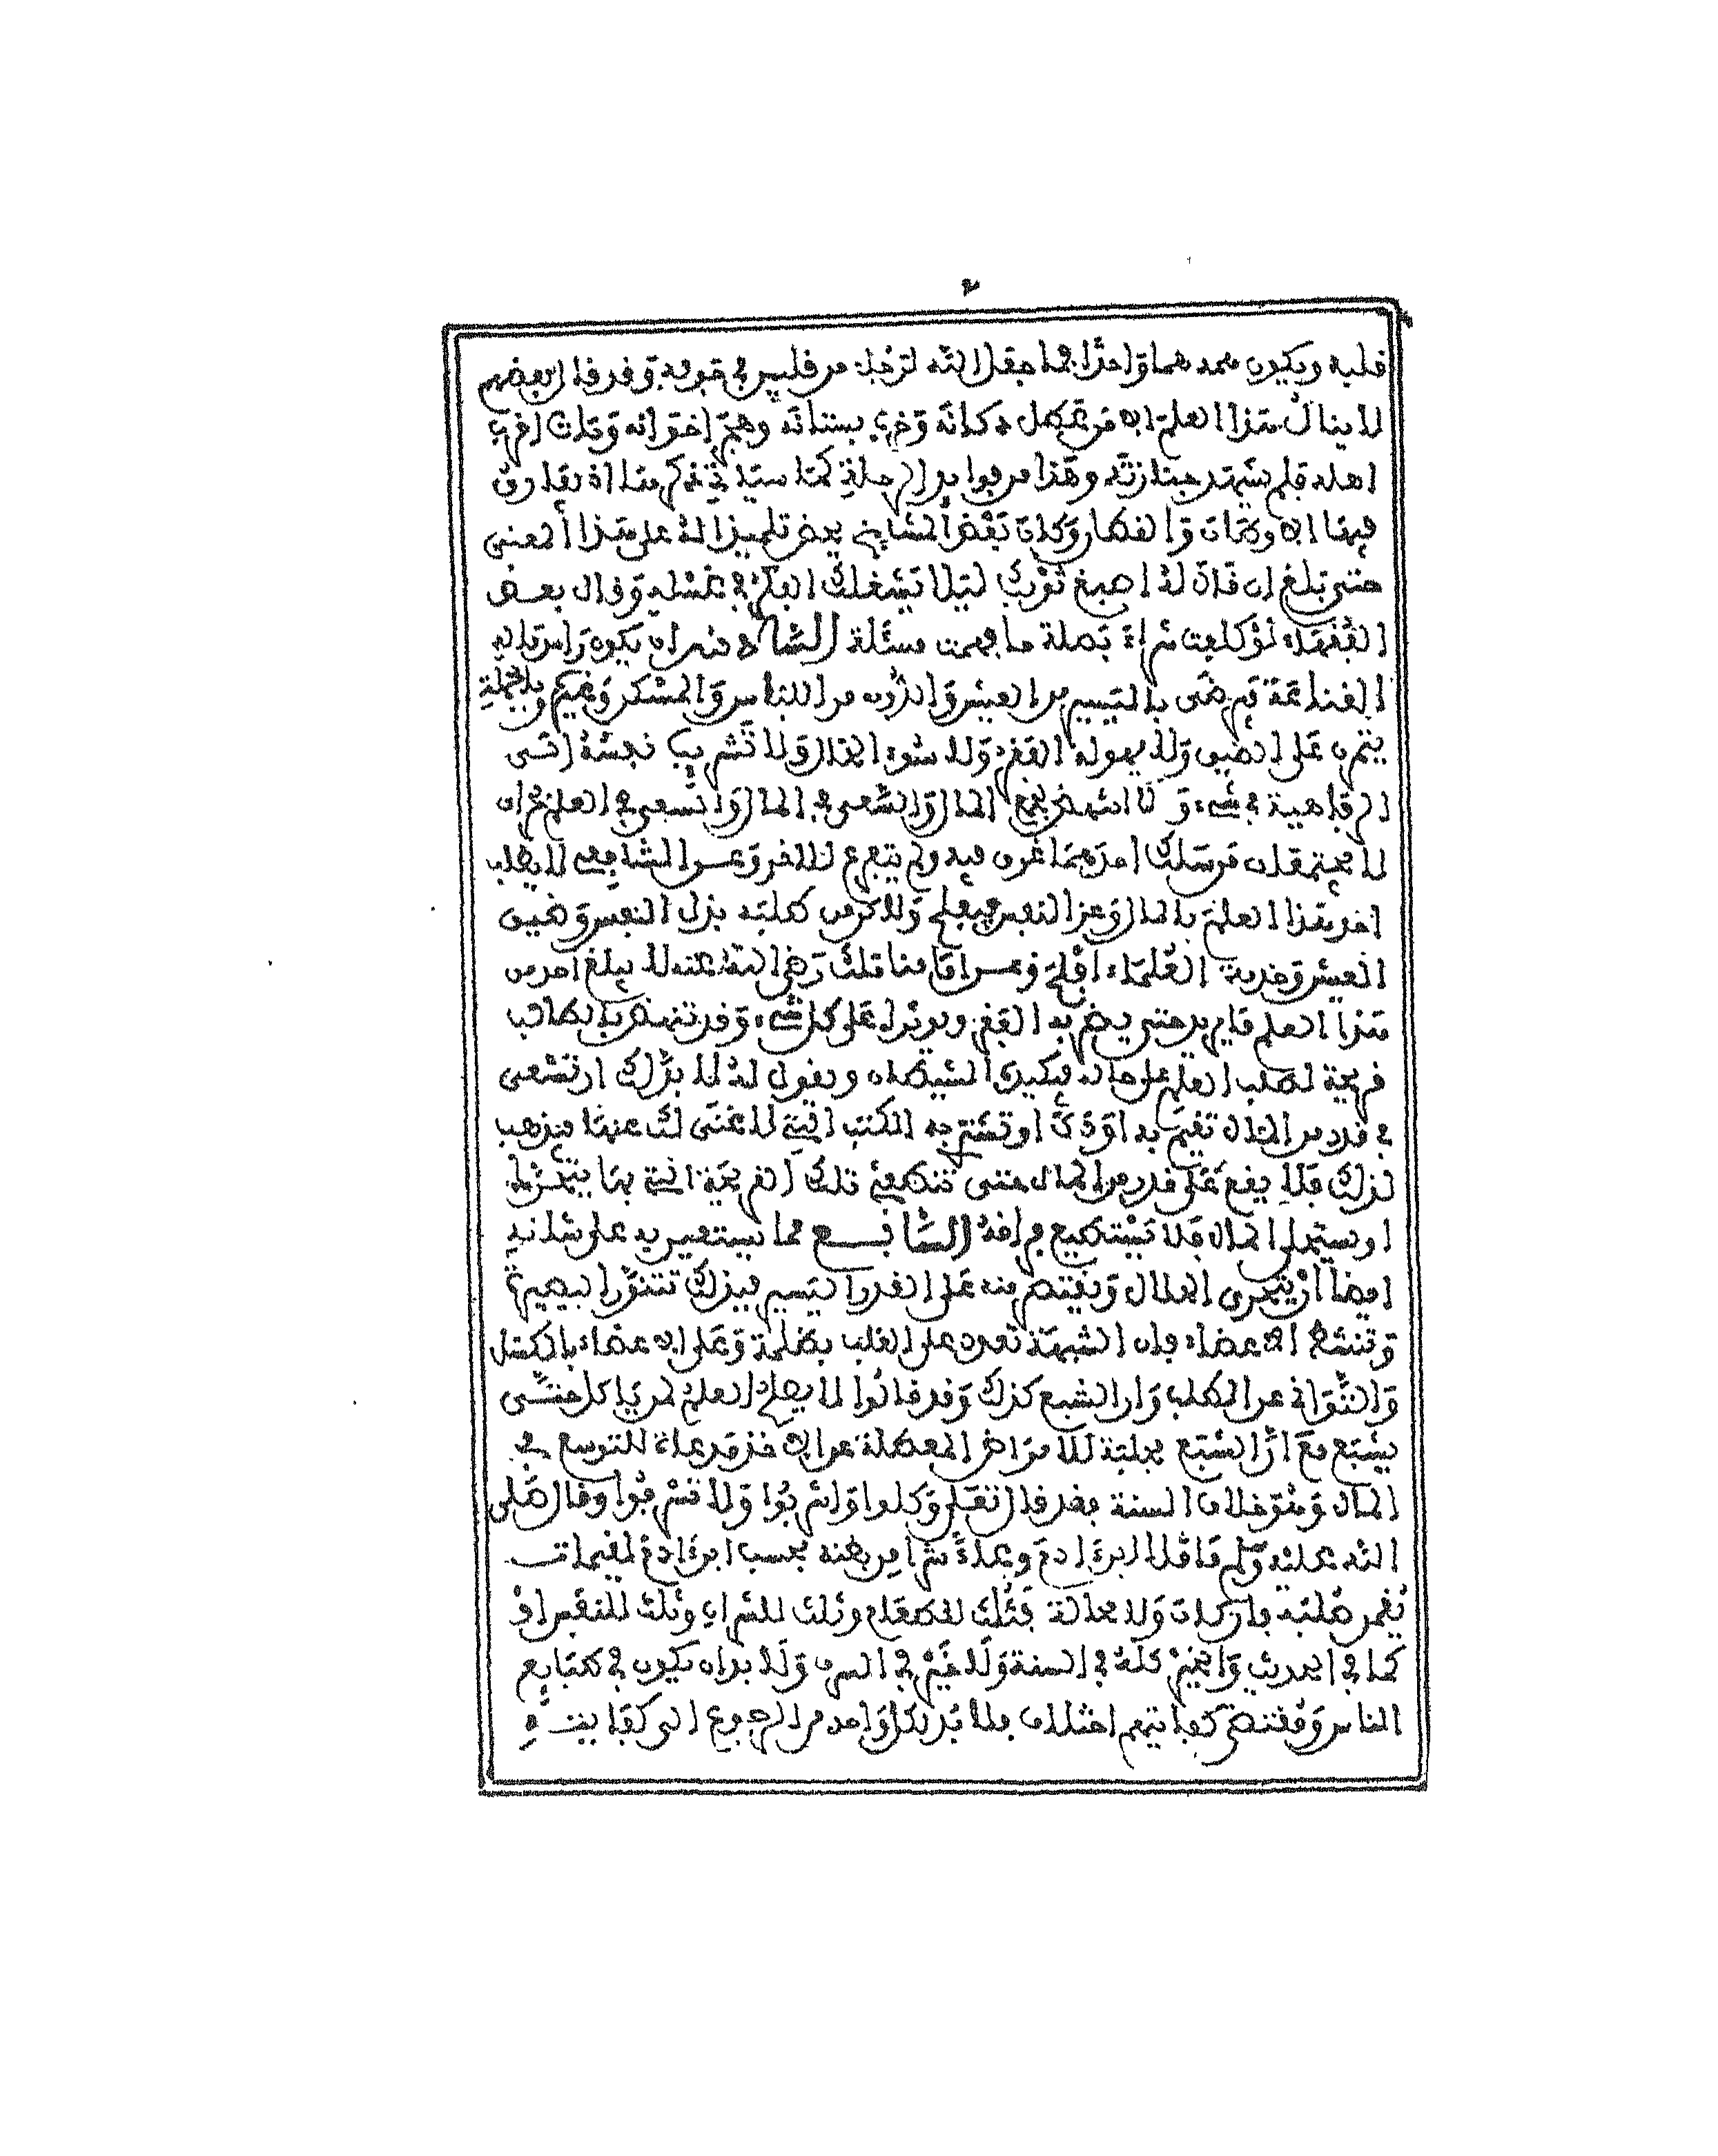 ٢
قلبه ويكون همه هما واحدا فما جعل الله لرجل من قلبين في جوفه وقد قال بعضهم
لا ينال هذا العلم الا من عطل دكانه وخرب بستانه وهجر اخوانه ومات اقرب
اهله فلم يشهد جنازته وهذا من فوايد الرحلة كما سياتي ذكرها اذ يفارق
فيها الاوطان والافكار وكان بعض المشايخ يحض تلميذا له على هذا المعنى
حتى بلغ ان قال له اصبغ ثوبك ليلا يشغلك الفكر في غسله وقال بعض
الفقهاء لو كلفت شراء بصلة ما فهمت مسئلة السادس ان يكون راس ماله
القناعة فيرضى باليسير من العيش والدون من اللباس والمسكن وغيره وبالجملة
يتمرن على الضيق ولا يهوله الفقر ولا سوء الحال ولا تشرئب نفسه الى
الرفاهية في شيء ولا الشهرة بجمع المال والسعي في المال والسعي في العلم امران
لا يجتمعان من سلك احدهما غرق فيه ولم يتفرغ للاخر وعن الشافعي لا يطلب
احد هذا العلم بالمال وعز النفس فيفلح ولاكن من طلبه بذل النفس وضيق
العيش وخدمة العلماء افلح وعن امامنا مالك رضي الله عنه لا يبلغ احد من
هذا العلم ما يريد حتى يضر به الفقر ويوثره على كل شيء وقد تنهض بالطالب
قريحة لطلب العلم على حاله فيكيده الشيطان ويقول له لا بد لك ان تسعى
في قدر من المال تقيم به اودك او تشتري به الكتب التي لا غنى لك عنها فيذهب
لذلك فلا يقع على قدر من المال حتى تنطفئ تلك القريحة التي بها يتحرك
او يستحلي المال فلا يستطيع فراقه السابع مما يستعين به على شانه
ايضا ان يتحرى الحلال ويقتصر منه على القدر اليسير فبذلك تتنور البصيرة
وتنشط الاعضاء فان الشبهة تعود على القلب بظلمة وعلى الاعضاء بالكسل
والتواني عن الطلب وان الشبع كذلك وقد قالوا لا يصلح العلم لمن ياكل حتى
يشبع مع ان الشبع مجلبة للامراض المعطلة عن الاخذ ومدعاة للتوسع في
المال وهو خلاف السنة فقد قال تعلى وكلوا واشربوا ولا تسرفوا وقال صلى
الله عليه وسلم ما ملا ابن ءادم وعاء شرا من بطنه بحسب ابن ءادم لقيمات
يقمن صلبه فان كان ولا محالة فثلث للطعام وثلث للشراب وثلث للنفس او
كما في الحديث والخير كله في السنة ولا خير في السرف ولا بد ان يكون في طبايع
الناس ومقتضى كفايتهم اختلاف فلا بد لكل واحد من الرجوع الى كفايته